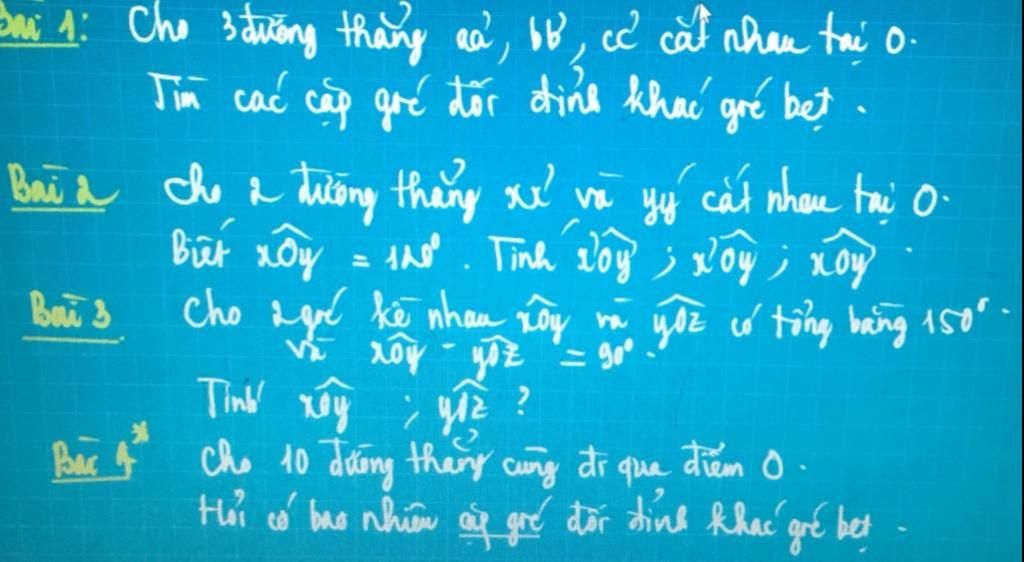 Bài 1: Cho 3 đường thẳng aa', bb', cc' cắt nhau tại O.
Tìm các cặp góc đối đỉnh khác góc bẹt.
Bài 2 Cho 2 đường thẳng xx' và yy' cắt nhau tại O.
Biết xOy = 120°. Tính x'Oy' ; x'Oy ; xOy'
Bài 3 Cho 2 góc kề nhau xOy và yOz có tổng bằng 150°.
và xOy - yOz = 90°.
Tính xOy ; yOz ?
Bài 4* Cho 10 đường thẳng cùng đi qua điểm O.
Hỏi có bao nhiêu cặp góc đối đỉnh khác góc bẹt.